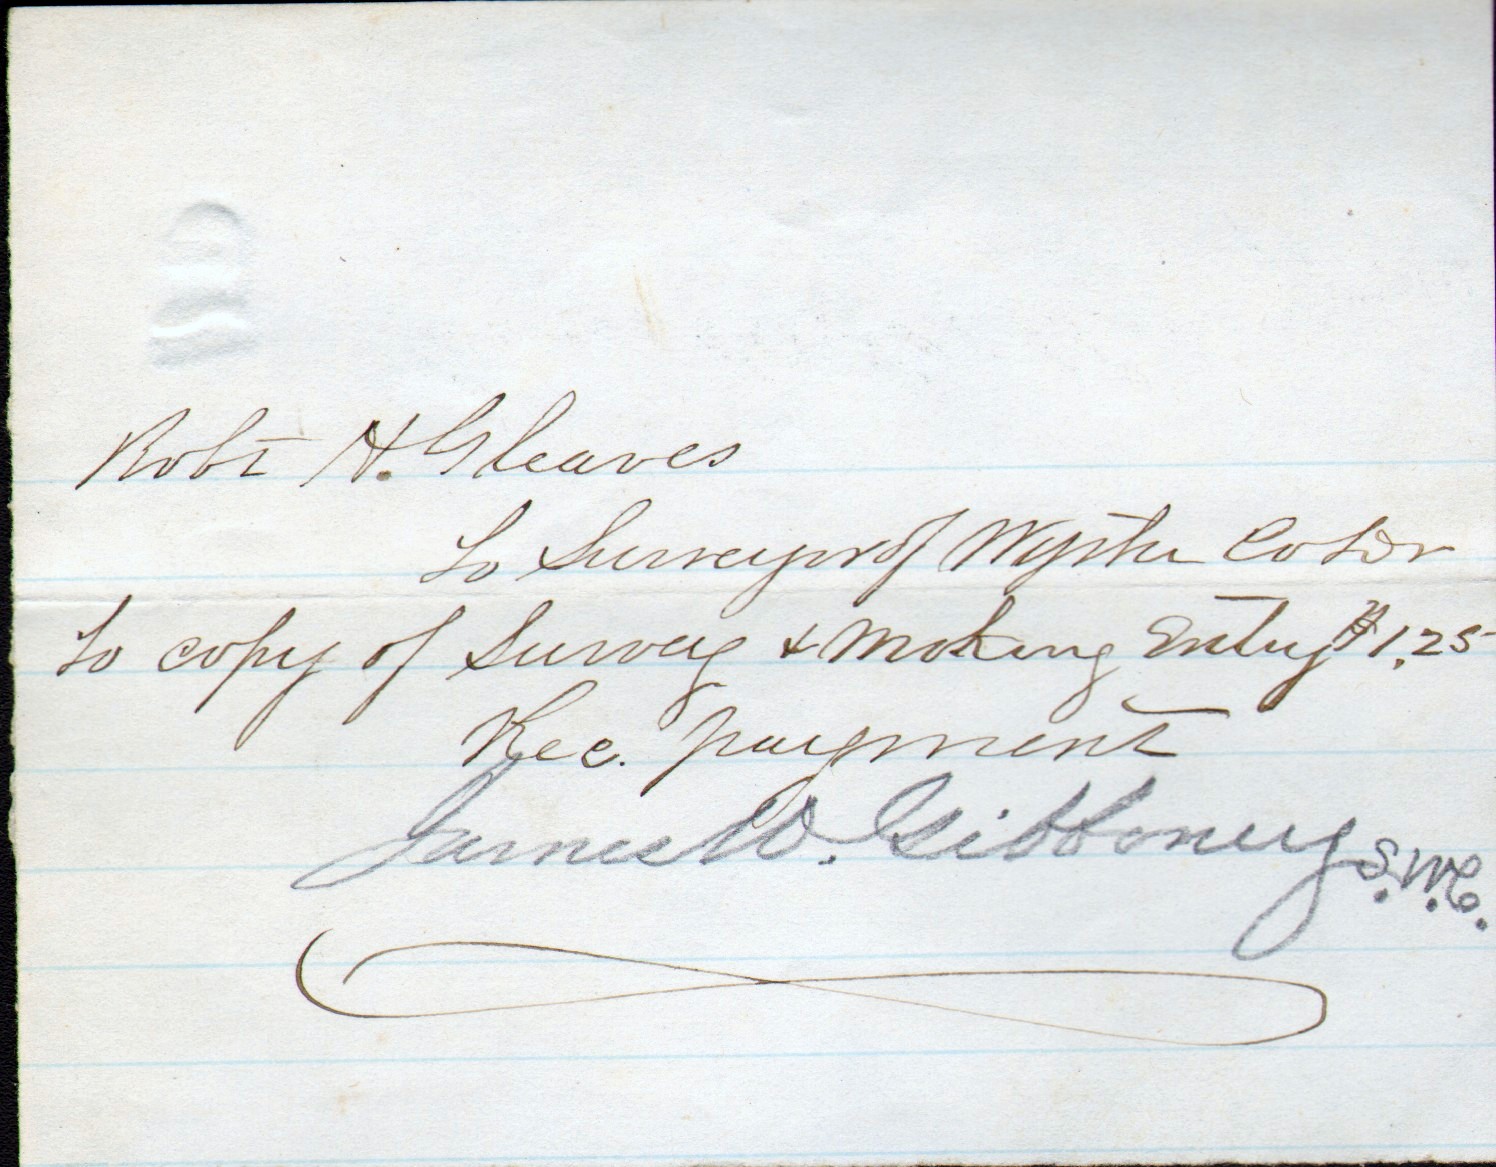 Robt H. Gleaves
To Surveyor of Wythe Co to Dr
To copy of Survey & Making Entry $1.25
Rec. payment
James W. Gibboney S.W.C.